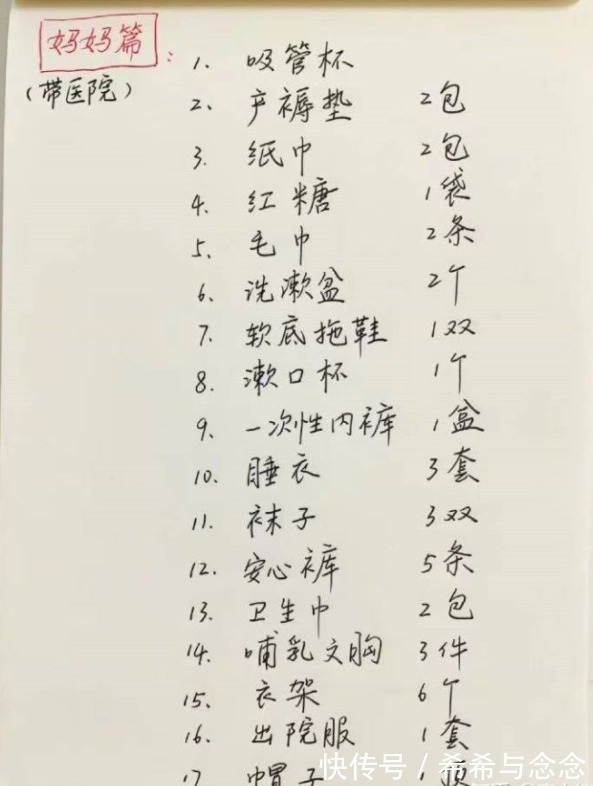 妈妈篇：
(带医院)
1. 吸管杯
2. 产褥垫 2包
3. 纸巾 2包
4. 红糖 1袋
5. 毛巾 2条
6. 洗漱盆 2个
7. 软底拖鞋 1双
8. 漱口杯 1个
9. 一次性内裤 1盒
10. 睡衣 3套
11. 袜子 3双
12. 安心裤 5条
13. 卫生巾 2包
14. 哺乳文胸 3件
15. 衣架 6个
16. 出院服 1套
17 帽子 1顶
快传号 / 希希与念念